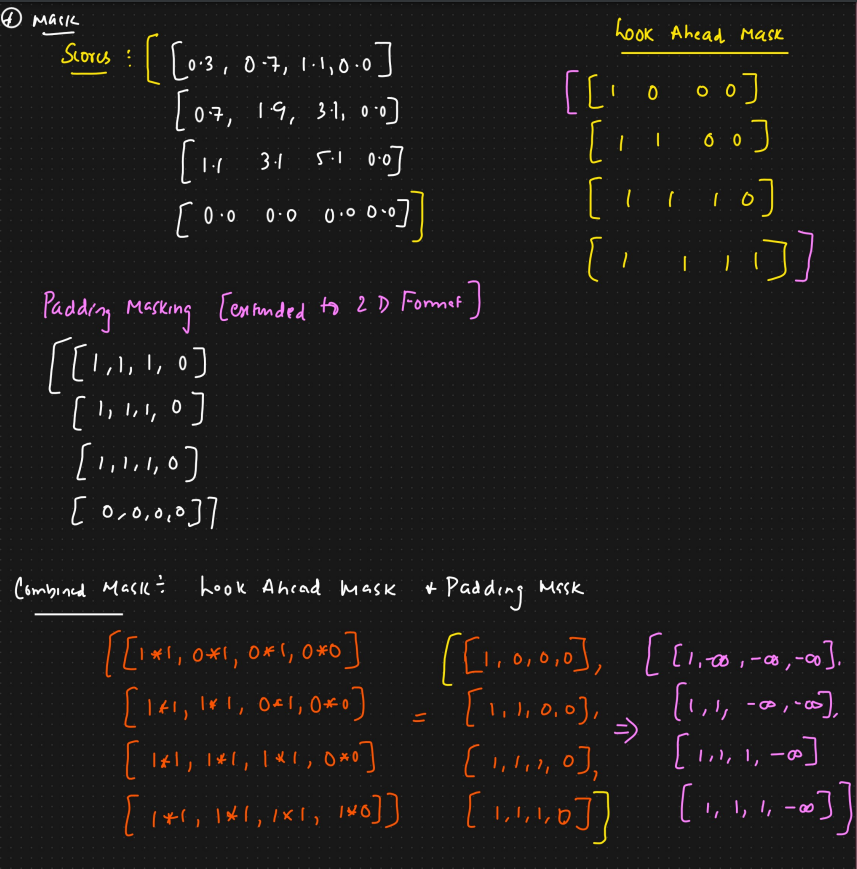 ④ Mask
Scores : [ [0.3, 0.7, 1.1, 0.0]
[0.7, 1.9, 3.1, 0.0]
[1.1 3.1 5.1 0.0]
[0.0 0.0 0.0 0.0] ]
Look Ahead Mask
[ [1 0 0 0]
[1 1 0 0]
[1 1 1 0]
[1 1 1 1] ]
Padding Masking [extended to 2 D Format]
[ [1, 1, 1, 0]
[1, 1, 1, 0]
[1, 1, 1, 0]
[0, 0, 0, 0] ]
Combined Mask : Look Ahead Mask * Padding Mask
[ [1*1, 0*1, 0*1, 0*0]
[1*1, 1*1, 0*1, 0*0]
[1*1, 1*1, 1*1, 0*0]
[1*1, 1*1, 1*1, 1*0] ]
=
[ [1, 0, 0, 0],
[1, 1, 0, 0],
[1, 1, 1, 0],
[1, 1, 1, 0] ]
⇒
[ [1, -∞, -∞, -∞],
[1, 1, -∞, -∞],
[1, 1, 1, -∞]
[1, 1, 1, -∞] ]